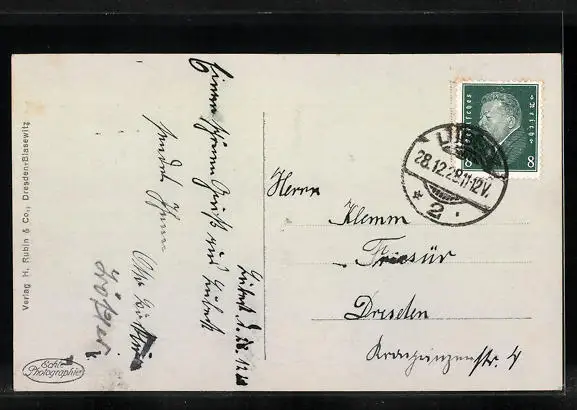 Verlag H. Rubin & Co., Dresden-Blasewitz
Echte
Photographie
Einen schönen Gruß aus Lübeck
sendet Ihnen
Otto
Lübeck d. 28. 12. 28
28.12.28.11-12V.
* 2.
8
8
Herrn
Klemm
Friesür
Dresden
Kronprinzenstr. 4